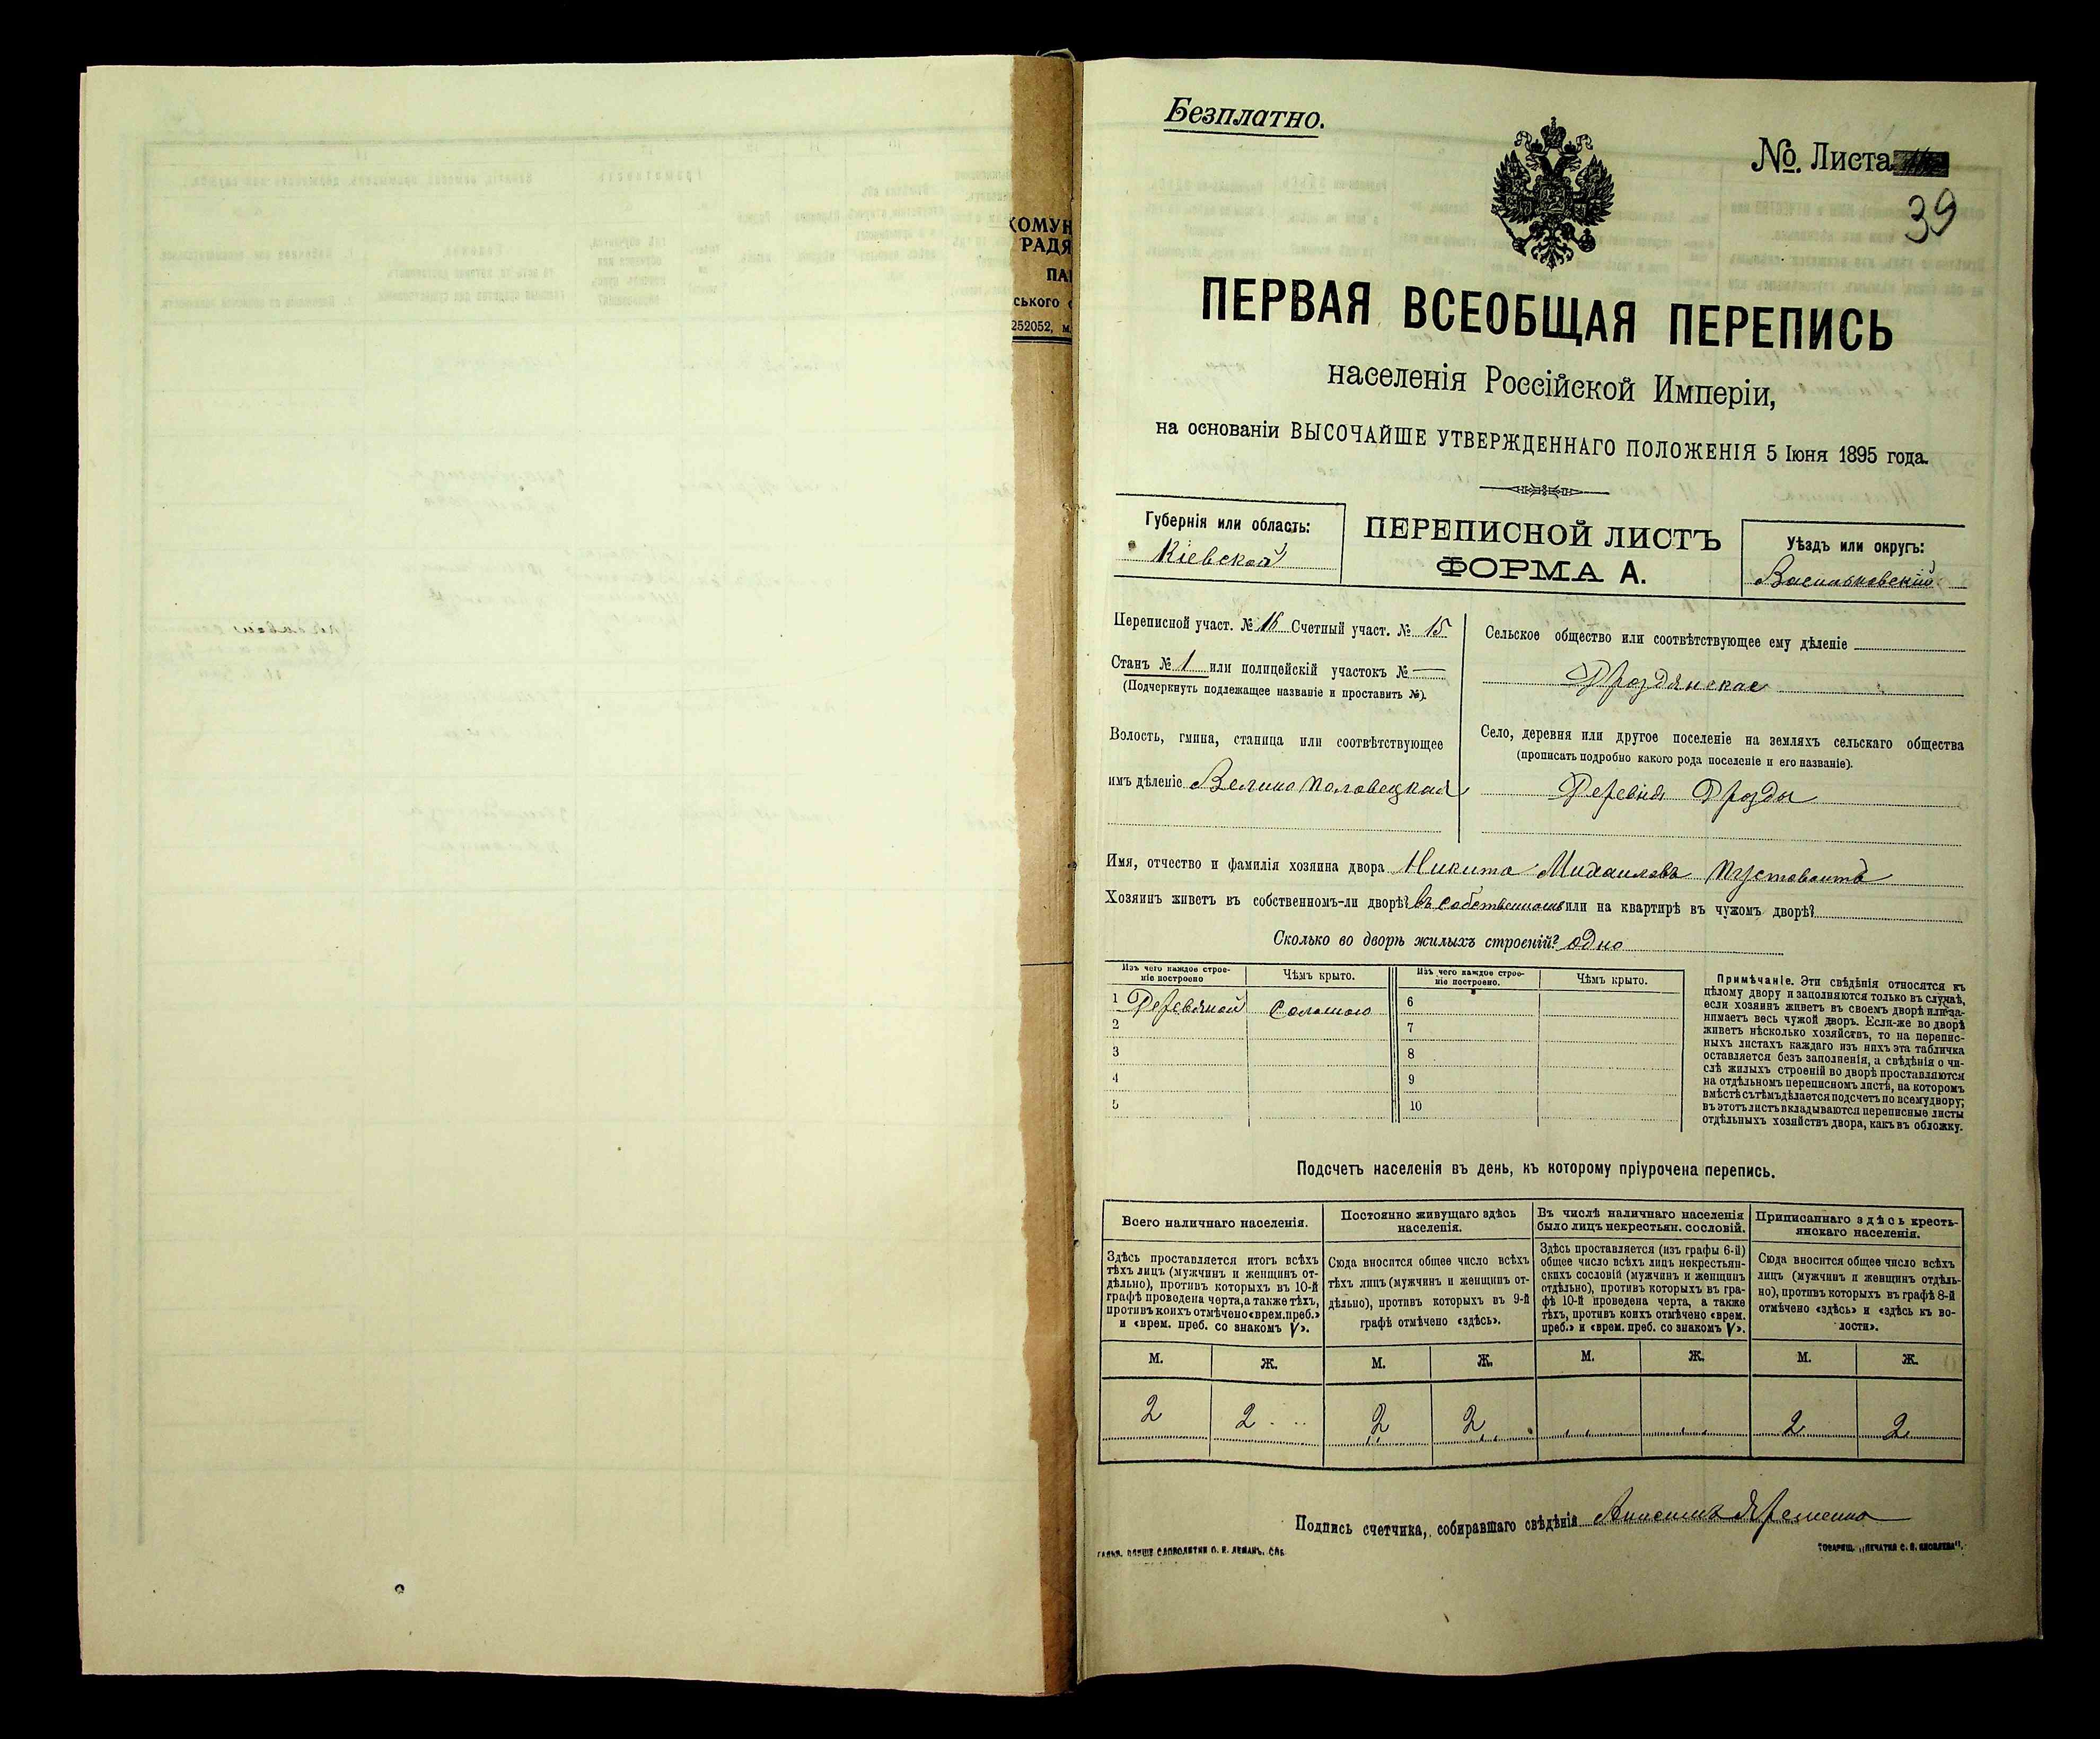 КОМУН
РАДЯ
ПА
ського
252052, м.
Безплатно.
№ Листа
39
ПЕРВАЯ ВСЕОБЩАЯ ПЕРЕПИСЬ
населенія Россійской Имперіи,
на основаніи ВЫСОЧАЙШЕ УТВЕРЖДЕННАГО ПОЛОЖЕНІЯ 5 Іюня 1895 года.
Губернія или область:
Кіевской
ПЕРЕПИСНОЙ ЛИСТЪ
ФОРМА А.
Уѣздъ или округъ:
Васильковский
Переписной участ. № 16 Счетный участ. № 15
Станъ № 1 или полицейскій участокъ № —
(Подчеркнуть подлежащее названіе и проставить №).
Волость, гмина, станица или соотвѣтствующее
имъ дѣленіе Велико Половецкая
Сельское общество или соотвѣтствующее ему дѣленіе
Дроздянское
Село, деревня или другое поселеніе на земляхъ сельскаго общества
(прописать подробно какого рода поселеніе и его названіе).
Деревня Дрозды
Имя, отчество и фамилія хозяина двора Никита Михаиловъ Пустовитъ
Хозяинъ живетъ въ собственномъ-ли дворѣ? въ собственномъ или на квартирѣ въ чужомъ дворѣ?
Сколько во дворѣ жилыхъ строеній? одно
Изъ чего каждое строе-
ніе построено
Чѣмъ крыто.
Изъ чего каждое строе-
ніе построено.
Чѣмъ крыто.
1 Деревяной Соломою 6
2 7
3 8
4 9
5 10
Примѣчаніе. Эти свѣдѣнія относятся къ
цѣлому двору и заполняются только въ случаѣ,
если хозяинъ живетъ въ своемъ дворѣ или за-
нимаетъ весь чужой дворъ. Если-же во дворѣ
живетъ нѣсколько хозяйствъ, то на перепис-
ныхъ листахъ каждаго изъ нихъ эта табличка
оставляется безъ заполненія, а свѣдѣнія о чи-
слѣ жилыхъ строеній во дворѣ проставляются
на отдѣльномъ переписномъ листѣ, на которомъ
вмѣстѣ съ тѣмъ дѣлается подсчетъ по всему двору;
въ этотъ листъ вкладываются переписные листы
отдѣльныхъ хозяйствъ двора, какъ въ обложку.
Подсчетъ населенія въ день, къ которому пріурочена перепись.
Всего наличнаго населенія.
Здѣсь проставляется итогъ всѣхъ
тѣхъ лицъ (мужчинъ и женщинъ от-
дѣльно), противъ которыхъ въ 10-й
графѣ проведена черта, а также тѣхъ,
противъ коихъ отмѣчено «врем. преб.»
и «врем. преб. со знакомъ V».
Постоянно живущаго здѣсь
населенія.
Сюда вносится общее число всѣхъ
тѣхъ лицъ (мужчинъ и женщинъ от-
дѣльно), противъ которыхъ въ 9-й
графѣ отмѣчено «здѣсь».
Въ числѣ наличнаго населенія
было лицъ некрестьян. сословій.
Здѣсь проставляется (изъ графы 6-й)
общее число всѣхъ лицъ некрестьян-
скихъ сословій (мужчинъ и женщинъ
отдѣльно), противъ которыхъ въ гра-
фѣ 10-й проведена черта, а также
тѣхъ, противъ коихъ отмѣчено «врем.
преб.» и «врем. преб. со знакомъ V».
Приписаннаго здѣсь кресть-
янскаго населенія.
Сюда вносится общее число всѣхъ
лицъ (мужчинъ и женщинъ отдѣль-
но), противъ которыхъ въ графѣ 8-й
отмѣчено «здѣсь» и «здѣсь къ во-
лости».
М. Ж. М. Ж. М. Ж. М. Ж.
2 2 2 2 2 2
Подпись счетчика, собиравшаго свѣдѣнія Анисимъ Яременко
ГАЛЬВ. КЛИШЕ СЛОВОЛИТНИ О. И. ЛЕМАНЪ, СПБ.
ТОВАРИЩ. „ПЕЧАТНЯ С. П. ЯКОВЛЕВА“.